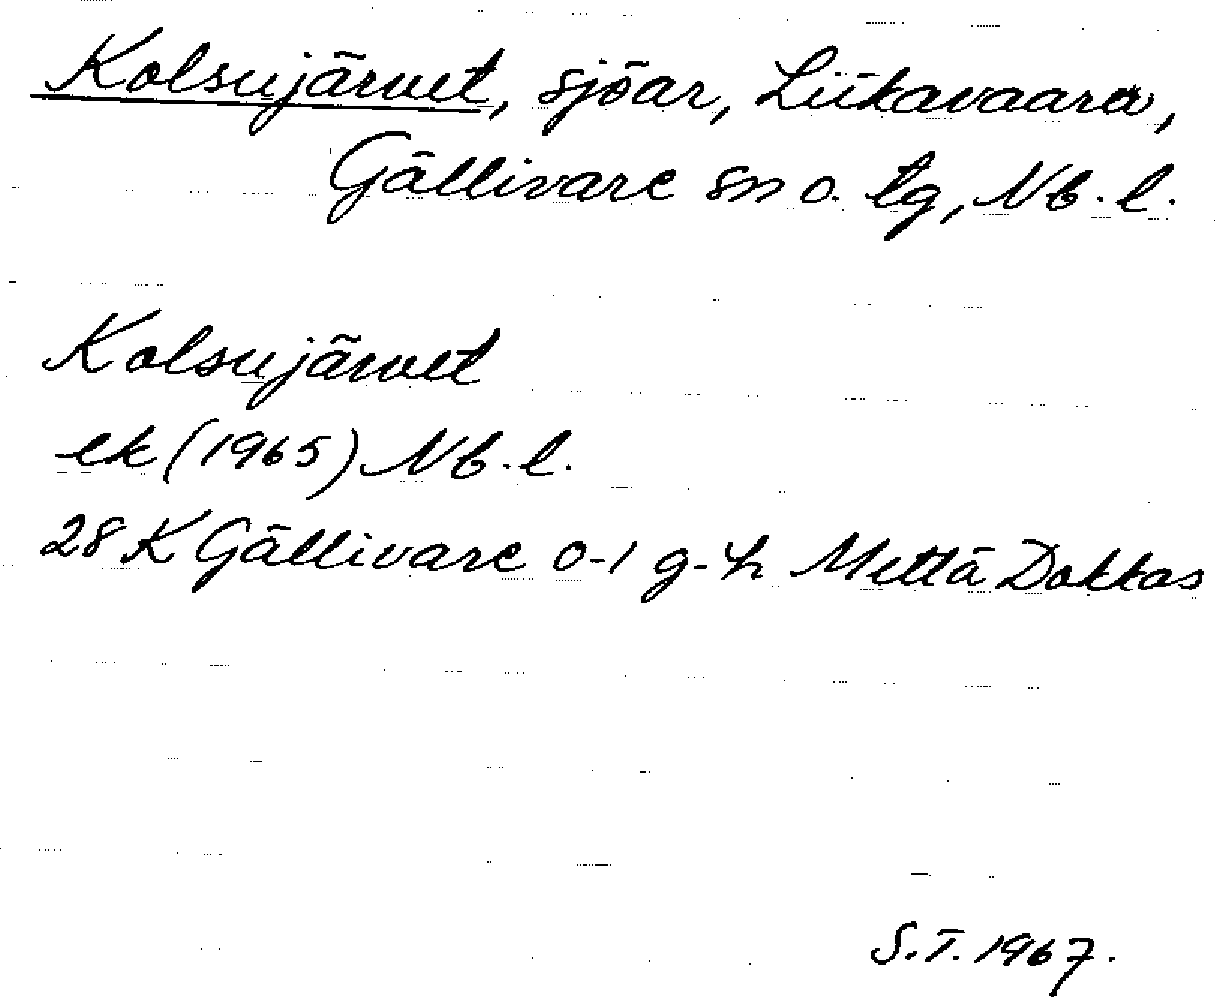 Kolsujärvet, sjöar, Liikavaara,
Gällivare sn o. tg, Nb. l.
Kolsujärvet
ek (1965) Nb. l.
28 K Gällivare 0-1 g-h Mettä Dokkas
S.T. 1967.